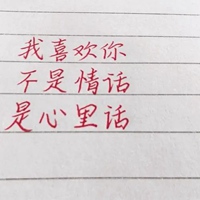 我喜欢你
不是情话
是心里话